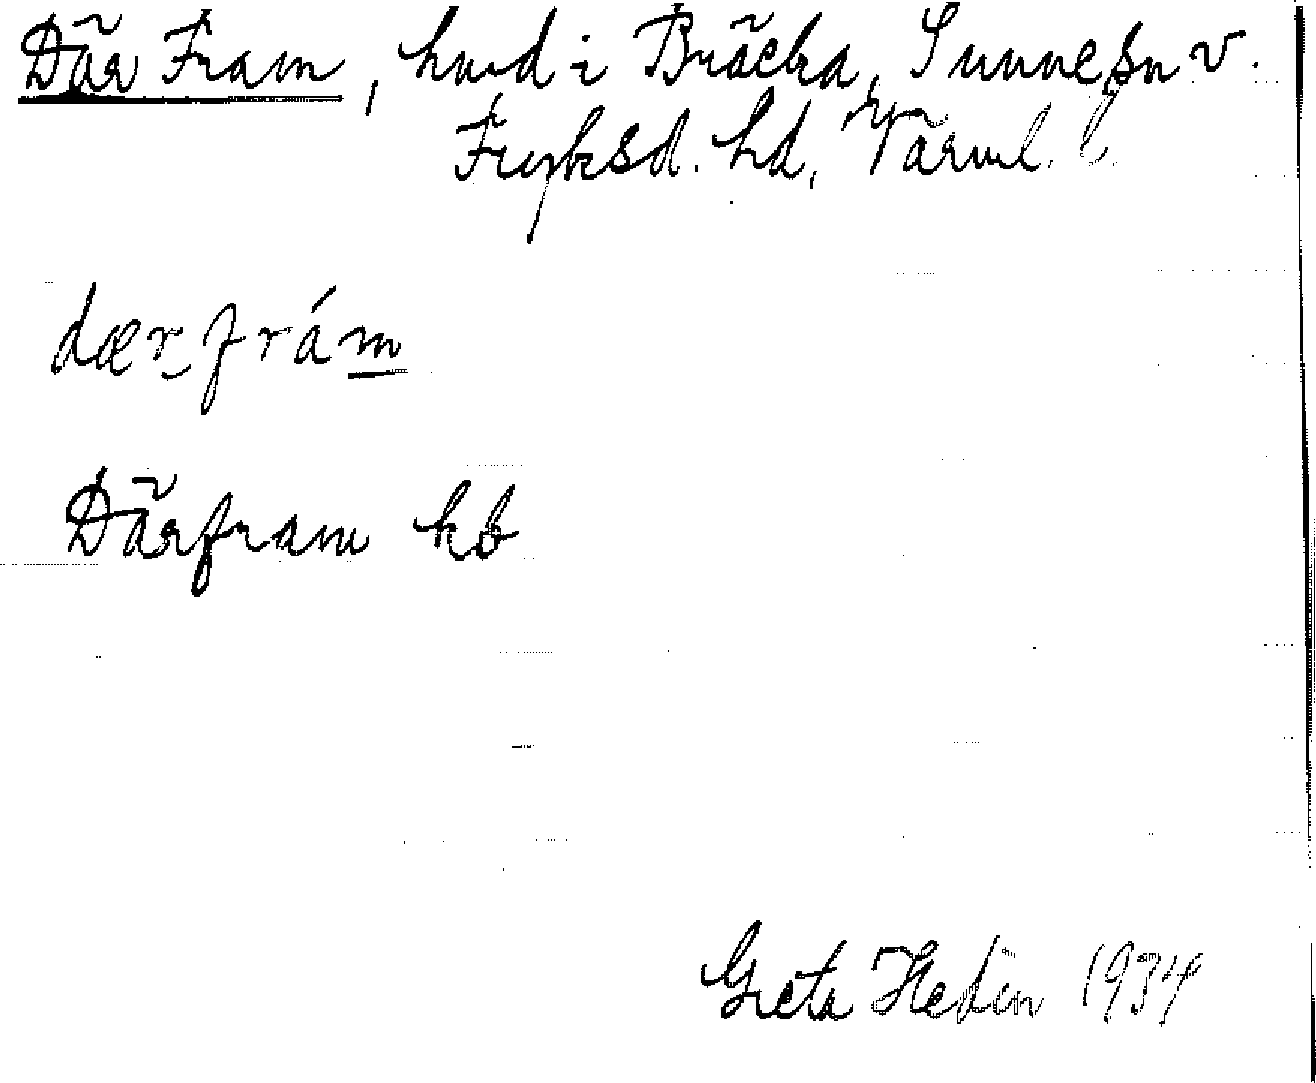 Där Fram, hmd i Bräcka, Sunne sn v.
Fryksd. hd, Värml. l.
dærfrám
Därfram kb
Greta Hedin 1934